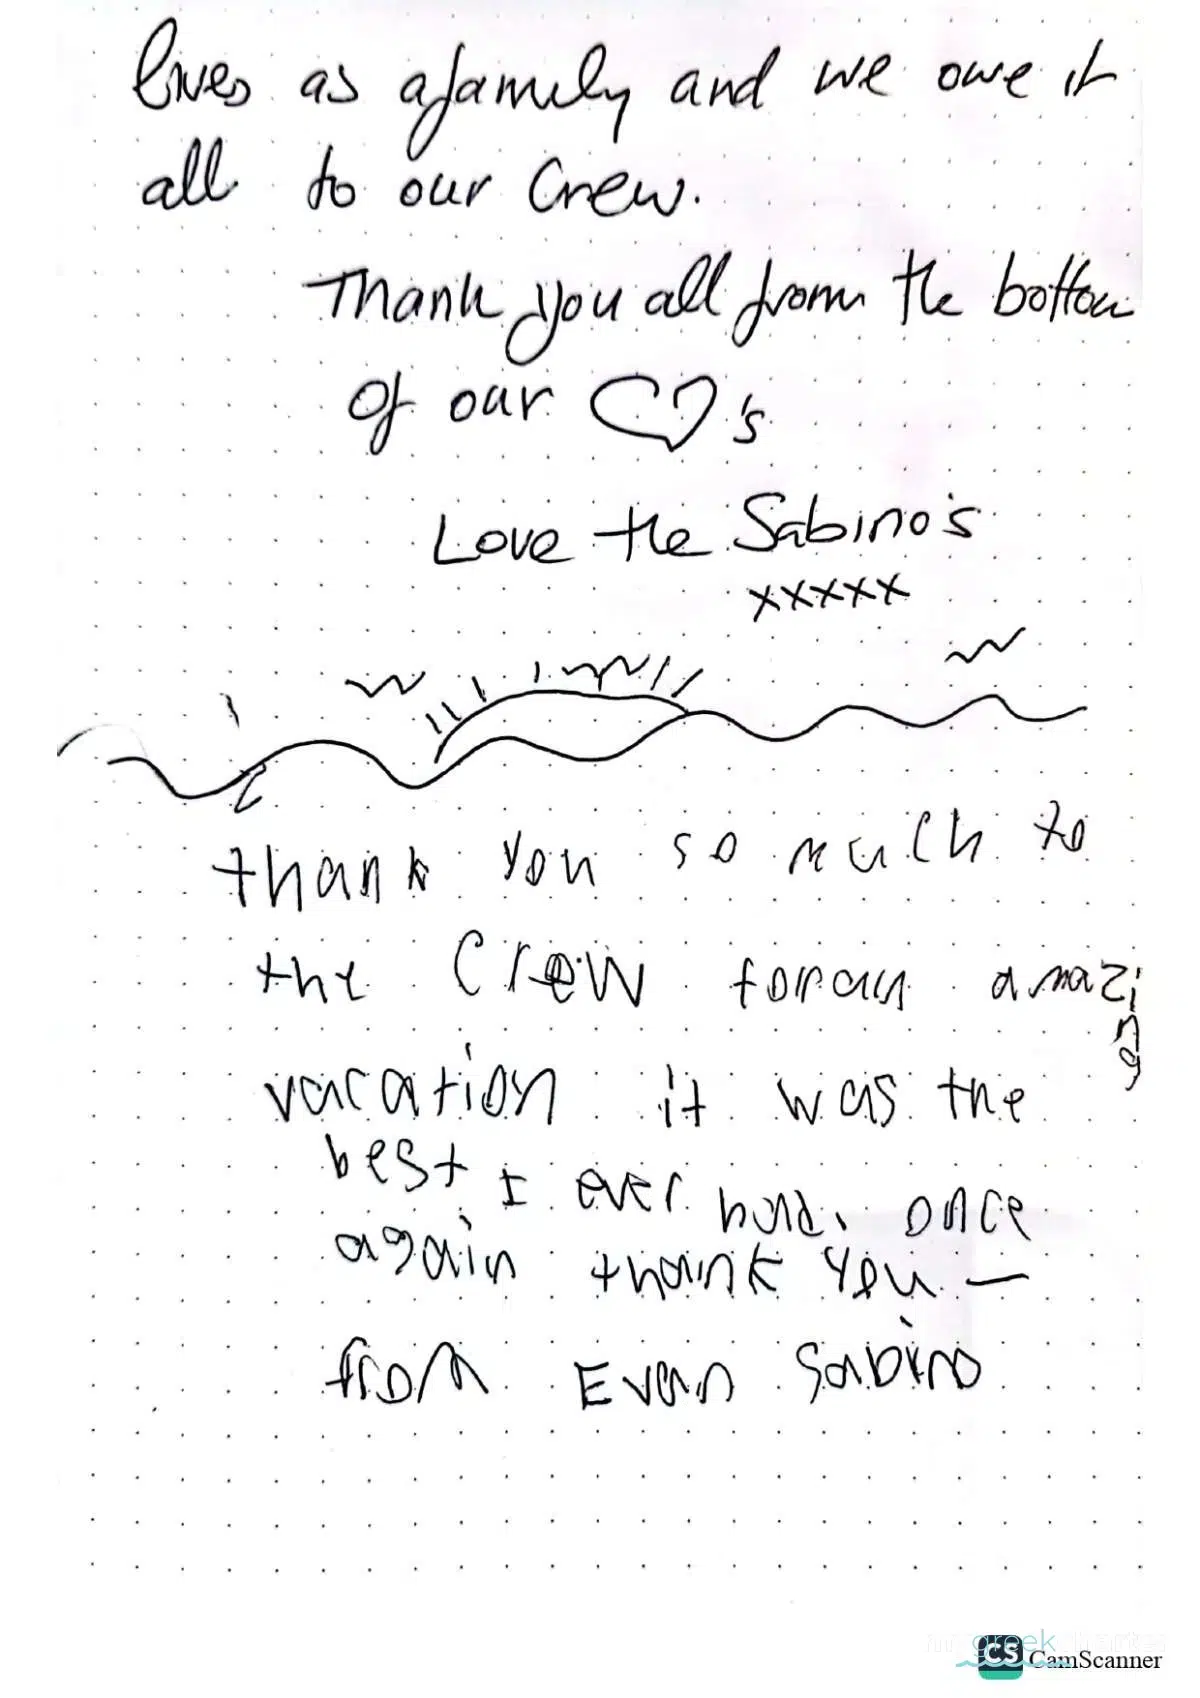 lives as a family and we owe it
all to our Crew.
Thank you all from the bottom
of our ♡'s
Love the Sabino's
xxxxx
thank you so much to
the Crew for an amazing
vacation it was the
best I ever had. once
again thank you —
from Evan Sabino
mygreekcharter
CS CamScanner